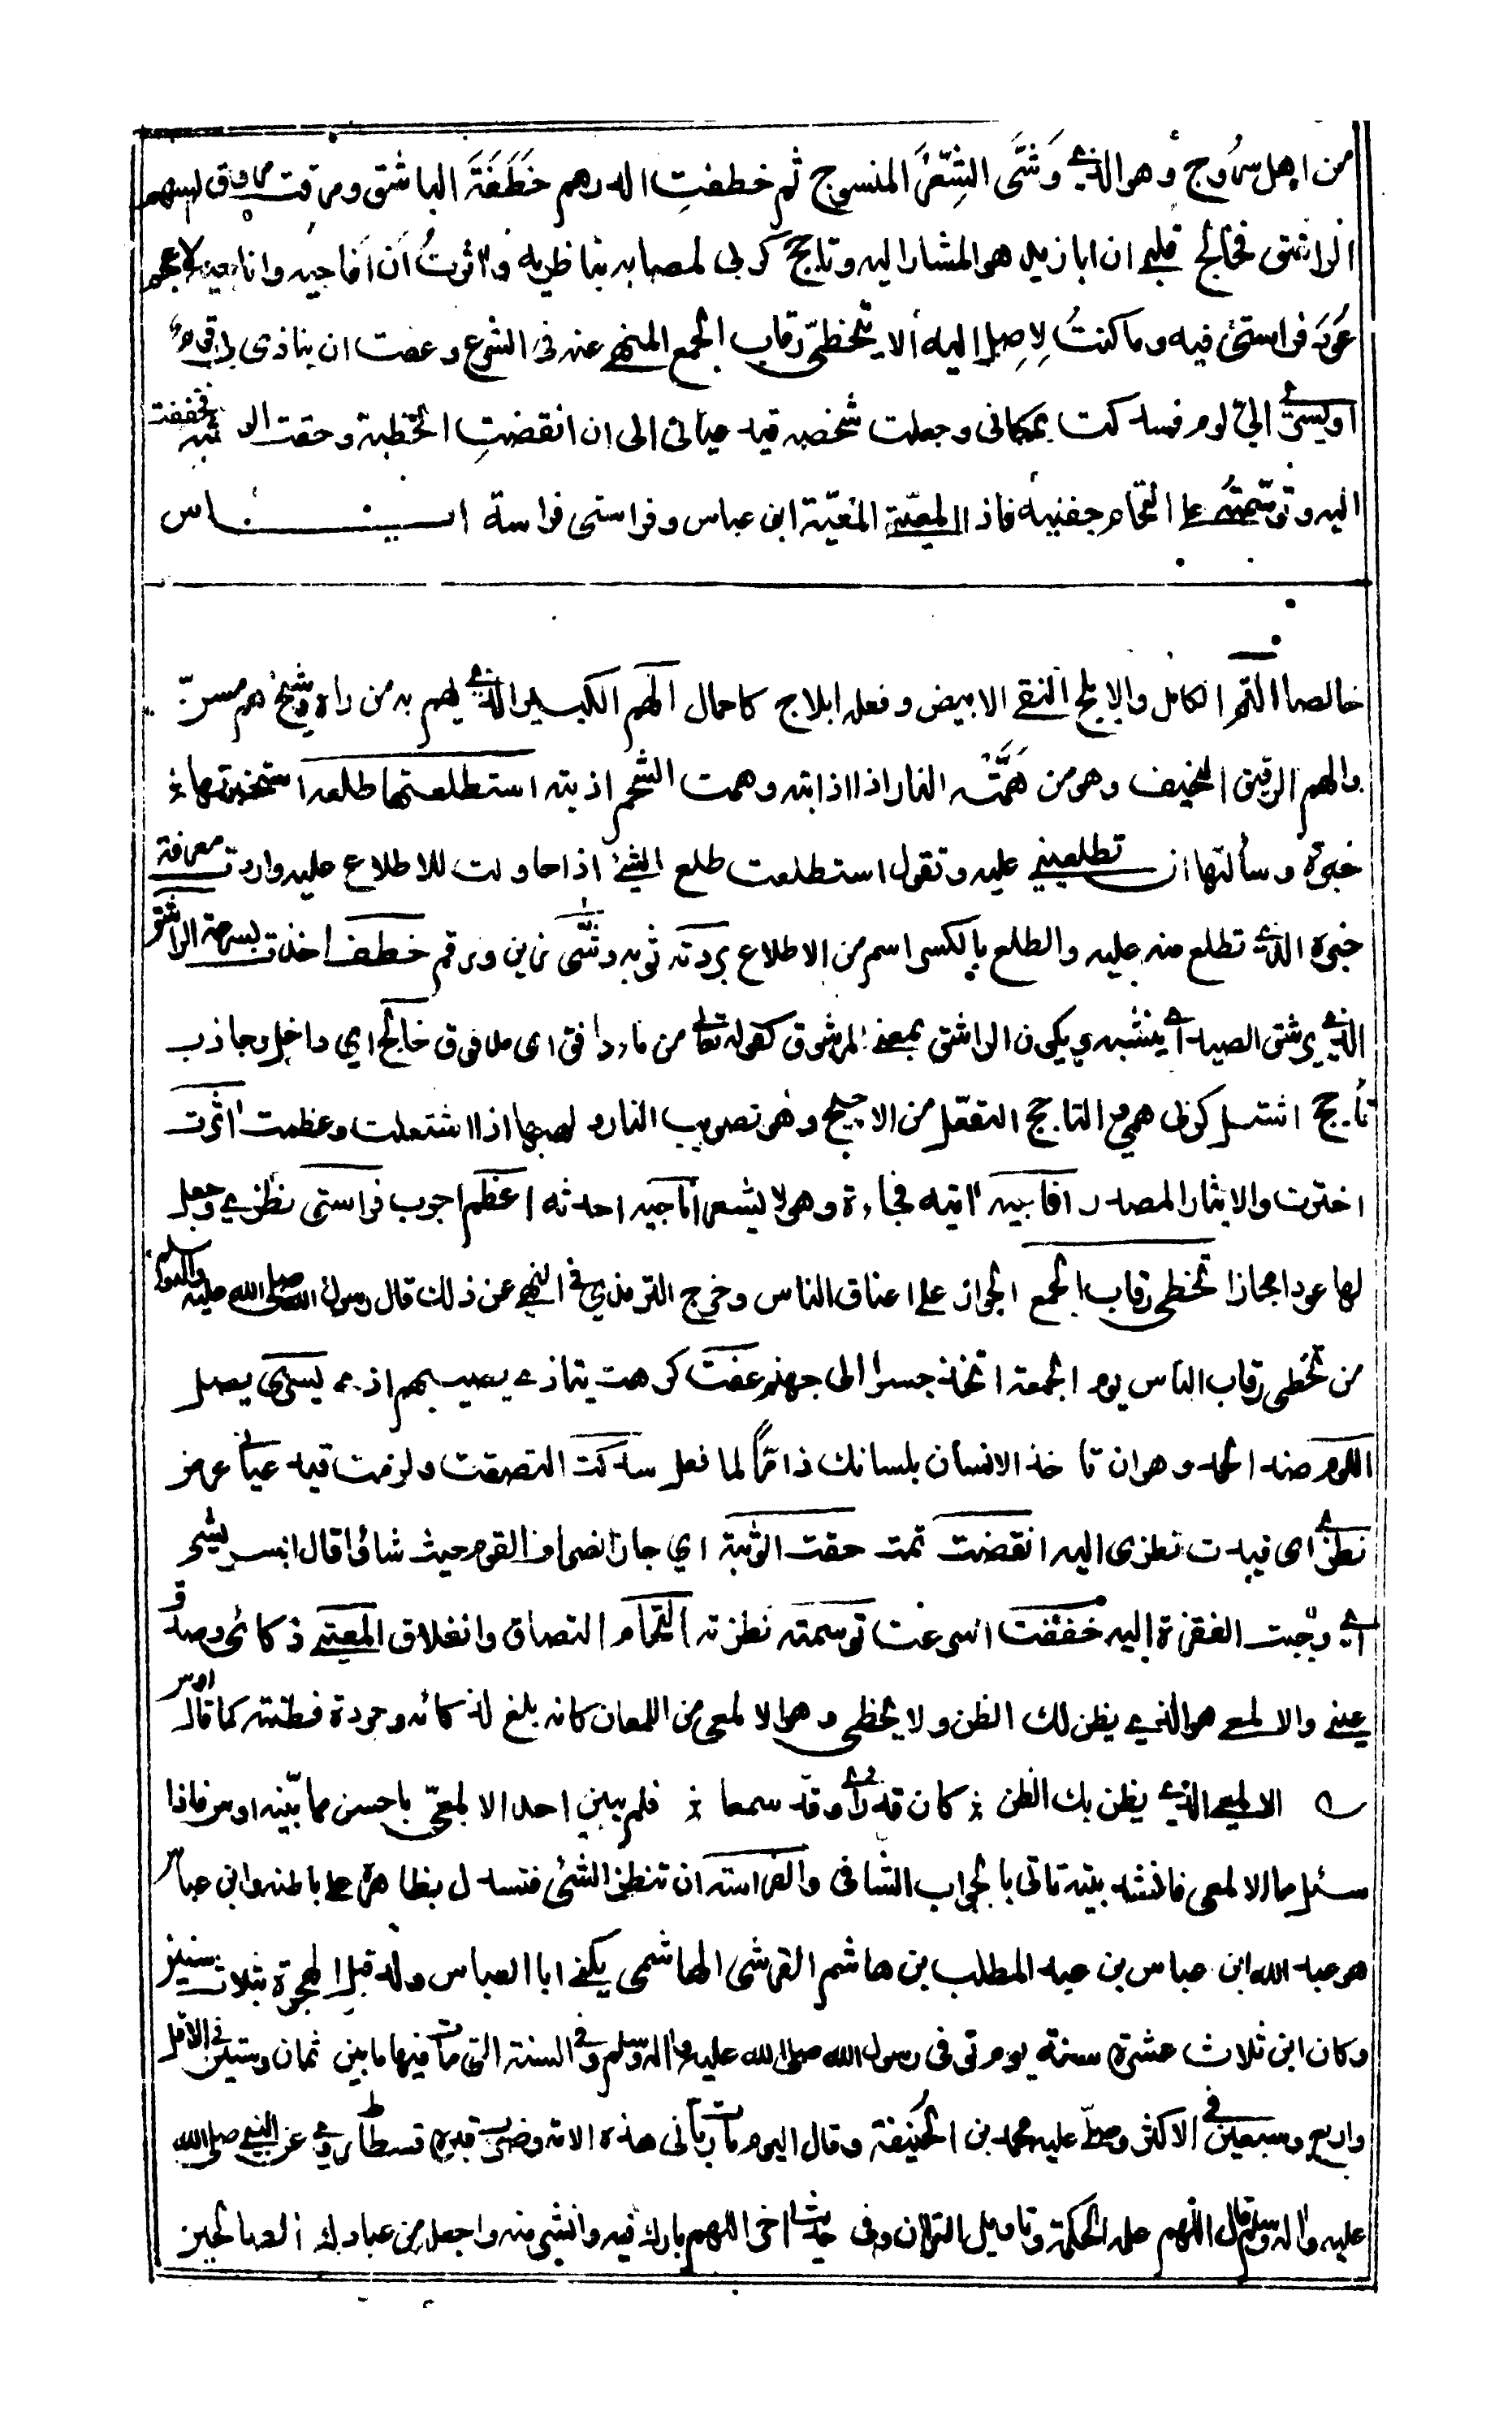 من اهل سروج وهو الذي وَشَّى الشِّعْرَ المنسوج ثم خطفتِ الدرهم خَطَفَةَ الباشق ومرقت مروق السهم
الراشق فخالج قلبي ان ابا زيد هو المشار اليه وتاجج كربي لمصابه بناظريه واثرتُ ان افاجيه واناجيه لاعجم
عُودَ فراستي فيه وما كنتُ لاصل اليه الا بتخطّي رقاب الجمع المنهي عنه في الشرع وعفت ان يتاذى بي قوم
او يسري اليّ لوم فسدكت بمكاني وجعلت شخصه قيد عياني الى ان انقضتِ الخطبة وحقت الوثبة فخففت
اليه وتوسّمتُه على التحام جفنيه فاذا المعيّتي المعيّة ابن عباس وفراستي فراسة اياس
خالصا التم الكامل والابلج النقي الابيض وفعله ابلاج كاحمال الهم الكبير الذي يهم به من راه وشيخ هم مسنّ
والهم الرقيق الخفيف وهو من هَمَّتْه النار اذا اذابته وهمت الشحم اذبته استطلعتها طلعه استخبرتها
خبره وسألتها ان تطلعيني عليه وتقول استطلعت طلع الشيء اذا حاولت للاطلاع عليه واردت معرفة
خبره الذي تطلع منه عليه والطلع بالكسر اسم من الاطلاع بردته ثوبه وشّى زين ورقم خطف اخذت بسرعة الراشق
الذي يرشق الصيد اي ينشبه ويكون الراشق بمعنى المرشوق كقوله تعالى من ماء دافق اى مدفوق خالج اي داخل وجاذب
تأجج اشتد كربي همي والتاجج التفعّل من الاجيج وهو تصويب النار ولهبها اذا اشتعلت وعظمت اثرت
اخترت والايثار المصدر افاجيه اتيه فجاءة وهو لا يشعر اناجيه احدثه اعجم اجرب فراستي نظري وجعل
لها عودا مجازا تخطي رقاب الجمع الجواز على اعناق الناس وخرج الترمذي في النهي عن ذلك قال رسول الله صلى الله عليه واله وسلم
من تخطى رقاب الناس يوم الجمعة اتخذ جسرا الى جهنم عفت كرهت يتاذى يصيبهم اذى يسري يصل
اللوم ضد الحمد وهو ان تاخذ الانسان بلسانك ذامّاً لما فعل سدكت التصقت ولزمت قيد عياني عرض
نظري اى قيدت نظرى اليه انقضت تمت حقت الوثبة اي جاز انصراف القوم حيث شاؤا قال
اي وجبت القفزة اليه خففت اسرعت توسمته نظرته التحام التصاق وانغلاق المعيتي ذكائي وصدق
عيني والالمعي هو الذي يظن لك الظن ولا يخطي وهو الالمعي من اللمعان كانه بلغ لذكائه وجودة فطنته كما قال اوس
الالمعي الذي يظن بك الظن كان قد رأى وقد سمعا فلم يبين احد الالمعيّ باحسن مما بيّنه اوس فاذا
سئل ما الالمعي فانشد بيته تاتى بالجواب الشافى والفراسته ان تنظر الشئ فتستدل بظاهره على باطنه وابن عباس
هو عبد الله ابن عباس بن عبد المطلب بن هاشم القرشى الهاشمى يكنى ابا العباس ولد قبل الهجرة بثلاث سنين
وكان ابن ثلاث عشرة سنة يوم توفى رسول الله صلى الله عليه واله وسلم وفي السنة التي مات فيها ما بين ثمان وستين في الاقل
واربع وسبعين في الاكثر وصلّى عليه محمد بن الحنيفة وقال اليوم مات رباني هذه الامة وضرب قبره فسطاط روي عن النبي صلى الله
عليه واله وسلم قال اللهم علمه الحكمة وتاويل القران وفى حديث اخر اللهم بارك فيه وانشر منه واجعله من عبادك الصالحين